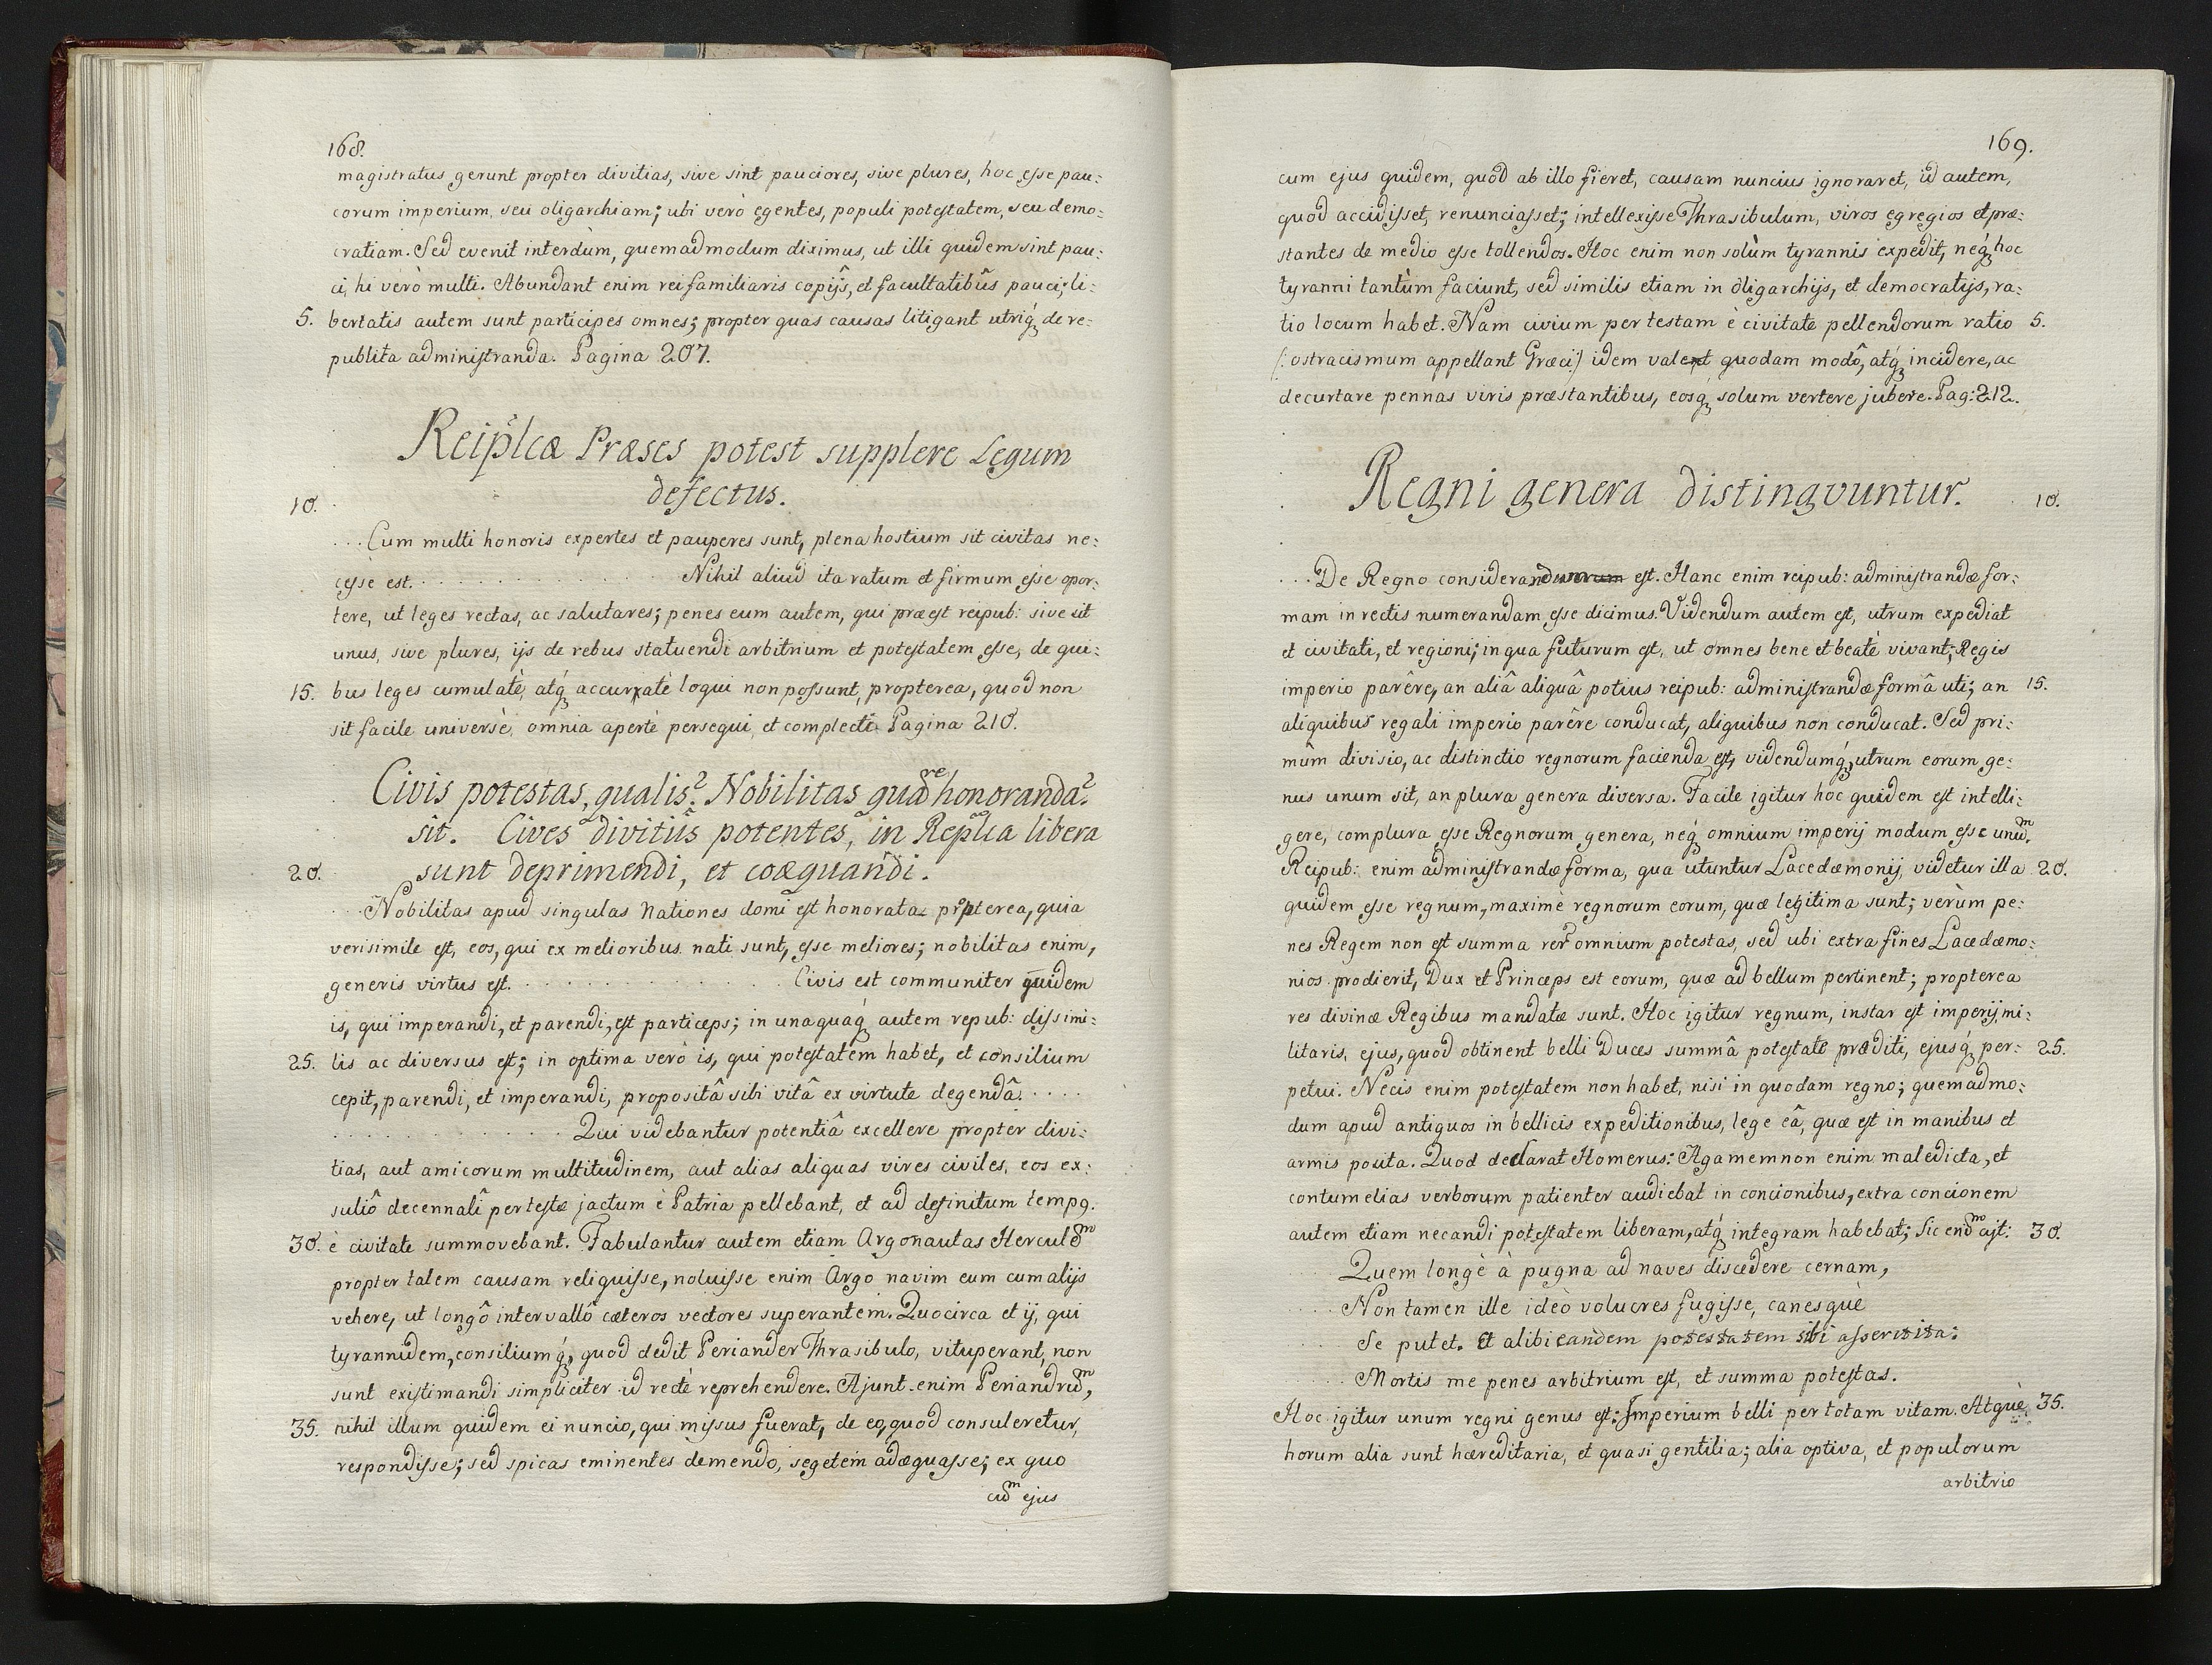 168.
magistratus gerunt propter divitias, sive sint pauciores, sive plures, hoc esse pau:
corum imperium, seu oligarchiam; ubi verò egentes, populi potestatem, seu demo:
cratiam. Sed evenit interdùm, quemadmodum diximus, ut illi quidem sint pau:
ci, hi verò multi. Abundant enim rei familiaris copijs, et facultatibûs pauci; li:
5. bertatis autem sunt participes omnes; propter quas causas litigant utriq́ꝫ de re:
publita administranda. Pagina 207.
Reip̃lcæ Præses potest supplere Legum
10. defectus.
... Cum multi honoris expertes et pauperes sunt, plena hostium sit civitas ne:
cesse est. . . . . . . . . . . . . . Nihil aliud ita ratum et firmum esse opor:
tere, ut leges rectas, ac salutares; penes eum autem, qui præest reipub: sive sit
unus, sive plures, ijs de rebus statuendi arbitrium et potestatem esse, de qui:
15. bus leges cumulatè, atq́ꝫ accuratè loqui non possunt, propterea, quod non
sit facile universè, omnia apertè persequi, et complecti. Pagina 210.
Civis potestas, qualis? Nobilitas quare honoranda?
sit. Cives divitiîs potentes, in Rep̃lca libera
20. sunt deprimendi, et coæquandi.
... Nobilitas apud singulas Nationes domi est honorata propterea, quia
verisimile est, eos, qui ex melioribus nati sunt, esse meliores; nobilitas enim,
generis virtus est. . . . . . . . . . . . . . Civis est communiter quidem
is, qui imperandi, et parendi, est particeps; in unaquaq́ꝫ autem repub: dissimi:
25. lis ac diversus est; in optima verò is, qui potestatem habet, et consilium
cepit, parendi, et imperandi, propositâ sibi vitâ ex virtute degendâ. . . . .
. . . . . . . . . . . Qui videbantur potentiâ excellere propter divi:
tias, aut amicorum multitudinem, aut alias aliquas vires civiles, eos ex:
suliô decennalî per testæ jactum è Patria pellebant, et ad definitum tempꝯ.
30. è civitate summovebant. Fabulantur autem etiam Argonautas Herculem
propter talem causam reliquisse, noluisse enim Argo navim eum cum alijs
vehere, ut longô intervallô cæteros vectores superantem. Quocirca et ij, qui
tyrannidem, consiliumq́ꝫ, quod dedit Periander Thrasibulo, vituperant, non
sunt existimandi simpliciter id rectè reprehendere. Ajunt enim Periandrum,
35. nihil illum quidem ei nuncio, qui missus fuerat, de eo, quod consuleretur,
respondisse; sed spicas eminentes demendo, segetem adæquasse; ex quo
cum ejus
169.
cum ejus quidem, quod ab illo fieret, causam nuncius ignoraret, id autem,
quod accidisset, renunciasset; intellexisse Thrasibulum, viros egregios et præ:
stantes de medio esse tollendos. Hoc enim non solùm tyrannis expedit, neq́ꝫ hoc
tyranni tantùm faciunt, sed similis etiam in oligarchijs, et democratijs, ra:
tio locum habet. Nam civium per testam è civitate pellendorum ratio 5.
(: ostracismum appellant Græci :) idem valet quodam modô, atq́ꝫ incidere, ac
decurtare pennas viris præstantibus, eosq́ꝫ solum vertere jubere. Pag: 212.
Regni genera distingvuntur. 10.
... De Regno considerandum est. Hanc enim reipub: administrandæ for:
mam in rectis numerandam esse dicimus. Videndum autem est, utrum expediat
et civitati, et regioni; in qua futurum est, ut omnes bene et beatè vivant; Regis
imperio parêre, an aliâ aliquâ potius reipub: administrandæ formâ uti; an 15.
aliquibus regali imperio parêre conducat, aliquibus non conducat. Sed pri:
mûm divisio, ac distinctio regnorum facienda est, videndumq́ꝫ, utrum eorum ge:
nus unum sit, an plura genera diversa. Facile igitur hoc quidem est intelli:
gere, complura esse Regnorum genera, neq́ꝫ omnium imperij modum esse unum.
Reipub: enim administrandæ forma, qua utuntur Lacedæmonij, videtur illa 20.
quidem esse regnum, maximè regnorum eorum, quæ legitima sunt; verùm pe:
nes Regem non est summa rer̃ omnium potestas, sed ubi extra fines Lacedæmo:
nios prodierit, Dux et Princeps est eorum, quæ ad bellum pertinent; propterea
res divinæ Regibus mandatæ sunt. Hoc igitur regnum, instar est imperij mi:
litaris, ejus, quod obtinent belli Duces summâ potestate præditi, ejusq́ꝫ per: 25.
petui. Necis enim potestatem non habet, nisi in quodam regno; quemadmo:
dum apud antiquos in bellicis expeditionibus, lege eâ, quæ est in manibus et
armis posita. Quod declarat Homerus: Agamemnon enim maledicta, et
contumelias verborum patienter audiebat in concionibus, extra concionem
autem etiam necandi potestatem liberam, atq́ꝫ integram habebat; Sic enim ajt: 30.
Quem longè à pugna ad naves discedere cernam,
.... Non tamen ille ideò volucres fugisse, canesquè
.... Se putet. Et alibi eandem potestatem sibi asserit ita:
.... Mortis me penes arbitrium est, et summa potestas.
Hoc igitur unum regni genus est: Imperium belli per totam vitam. Atquè 35.
horum alia sunt hæreditaria, et quasi gentilia; alia optiva, et populorum
arbitrio